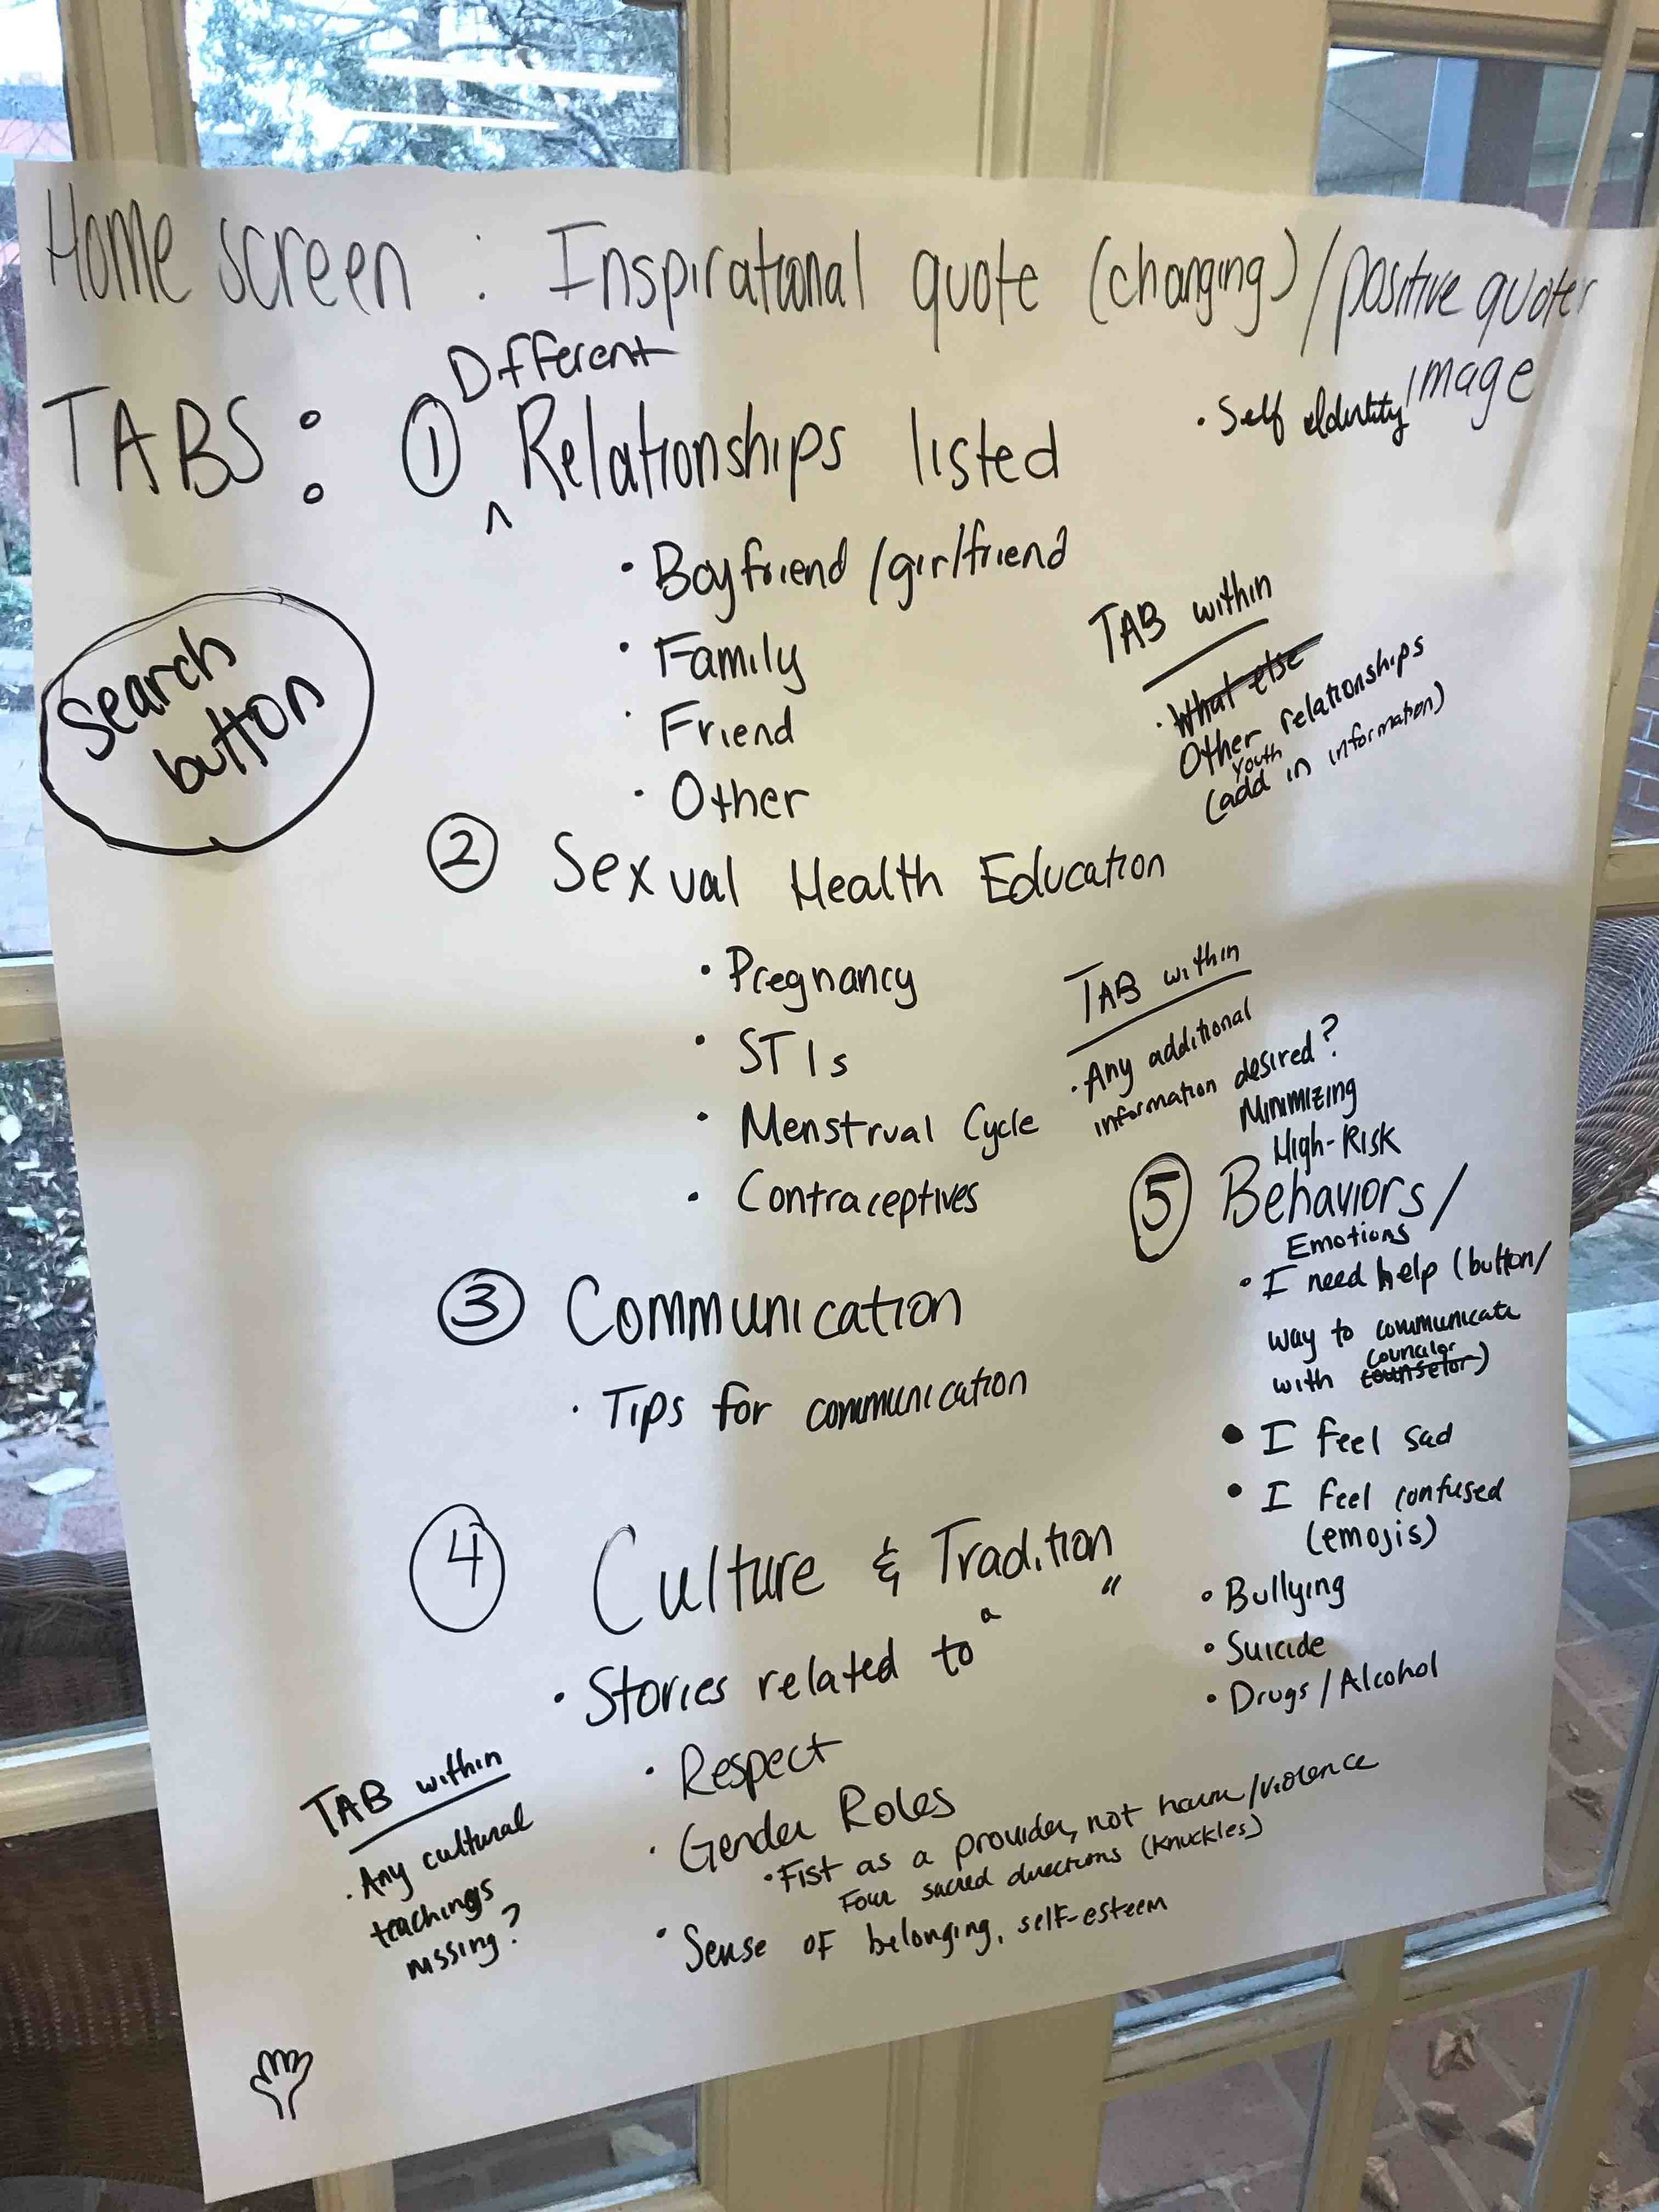 Home screen : Inspirational quote (changing) / positive quotes
image
TABS: ① Different Relationships listed
· Self Identity
· Boyfriend /girlfriend
· Family
· Friend
· Other
TAB within
· What else
Other relationships
youth
(add in information)
Search
button
② Sexual Health Education
· Pregnancy
· STIs
· Menstrual Cycle
· Contraceptives
TAB within
· Any additional
information desired?
③ Communication
· Tips for communication
④ Culture & Tradition
· Stories related to " "
· Respect
· Gender Roles
· Fist as a provider, not harm/violence
Four sacred directions (knuckles)
· Sense of belonging, self-esteem
TAB within
· Any cultural
teachings
missing?
Minimizing
High-Risk
⑤ Behaviors/
Emotions
· I need help (button/
way to communicate
councilor
with counselor)
• I feel sad
• I feel confused
(emojis)
· Bullying
· Suicide
· Drugs/Alcohol